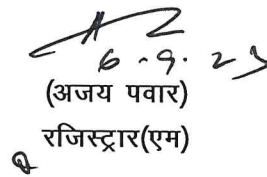 6.9.23
(अजय पवार)
रजिस्ट्रार(एम)